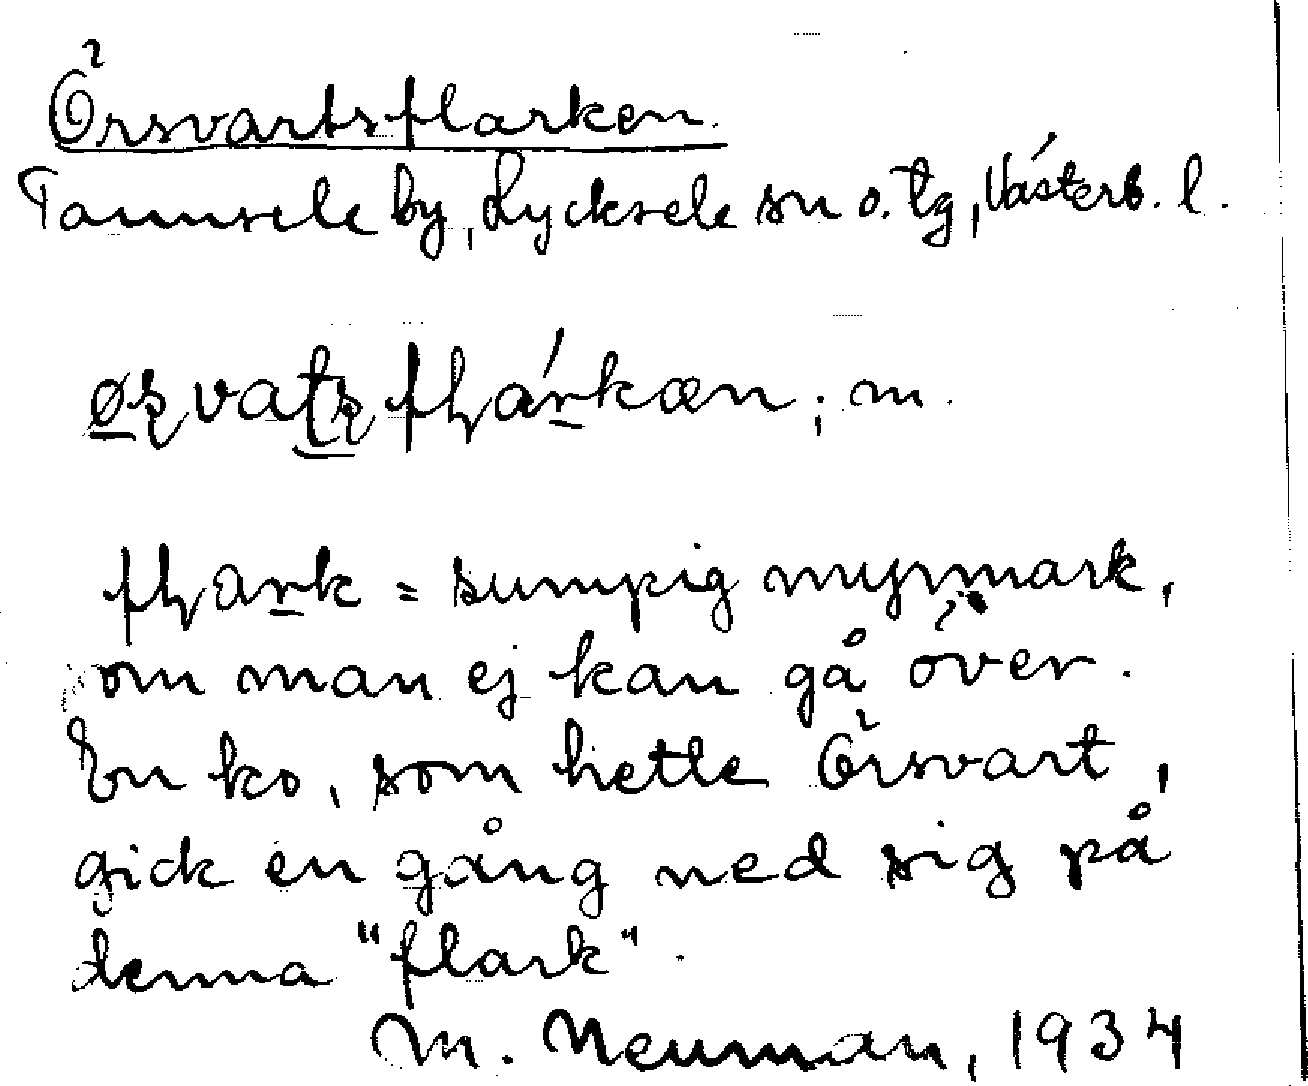 Örsvartsflarken.
Tannsele by, Lycksele sn o. tg, Västerb. l.
flark = sumpig myrmark,
om man ej kan gå över.
En ko, som hette Örsvart,
gick en gång ned sig på
denna "flark".
M. Neuman, 1934